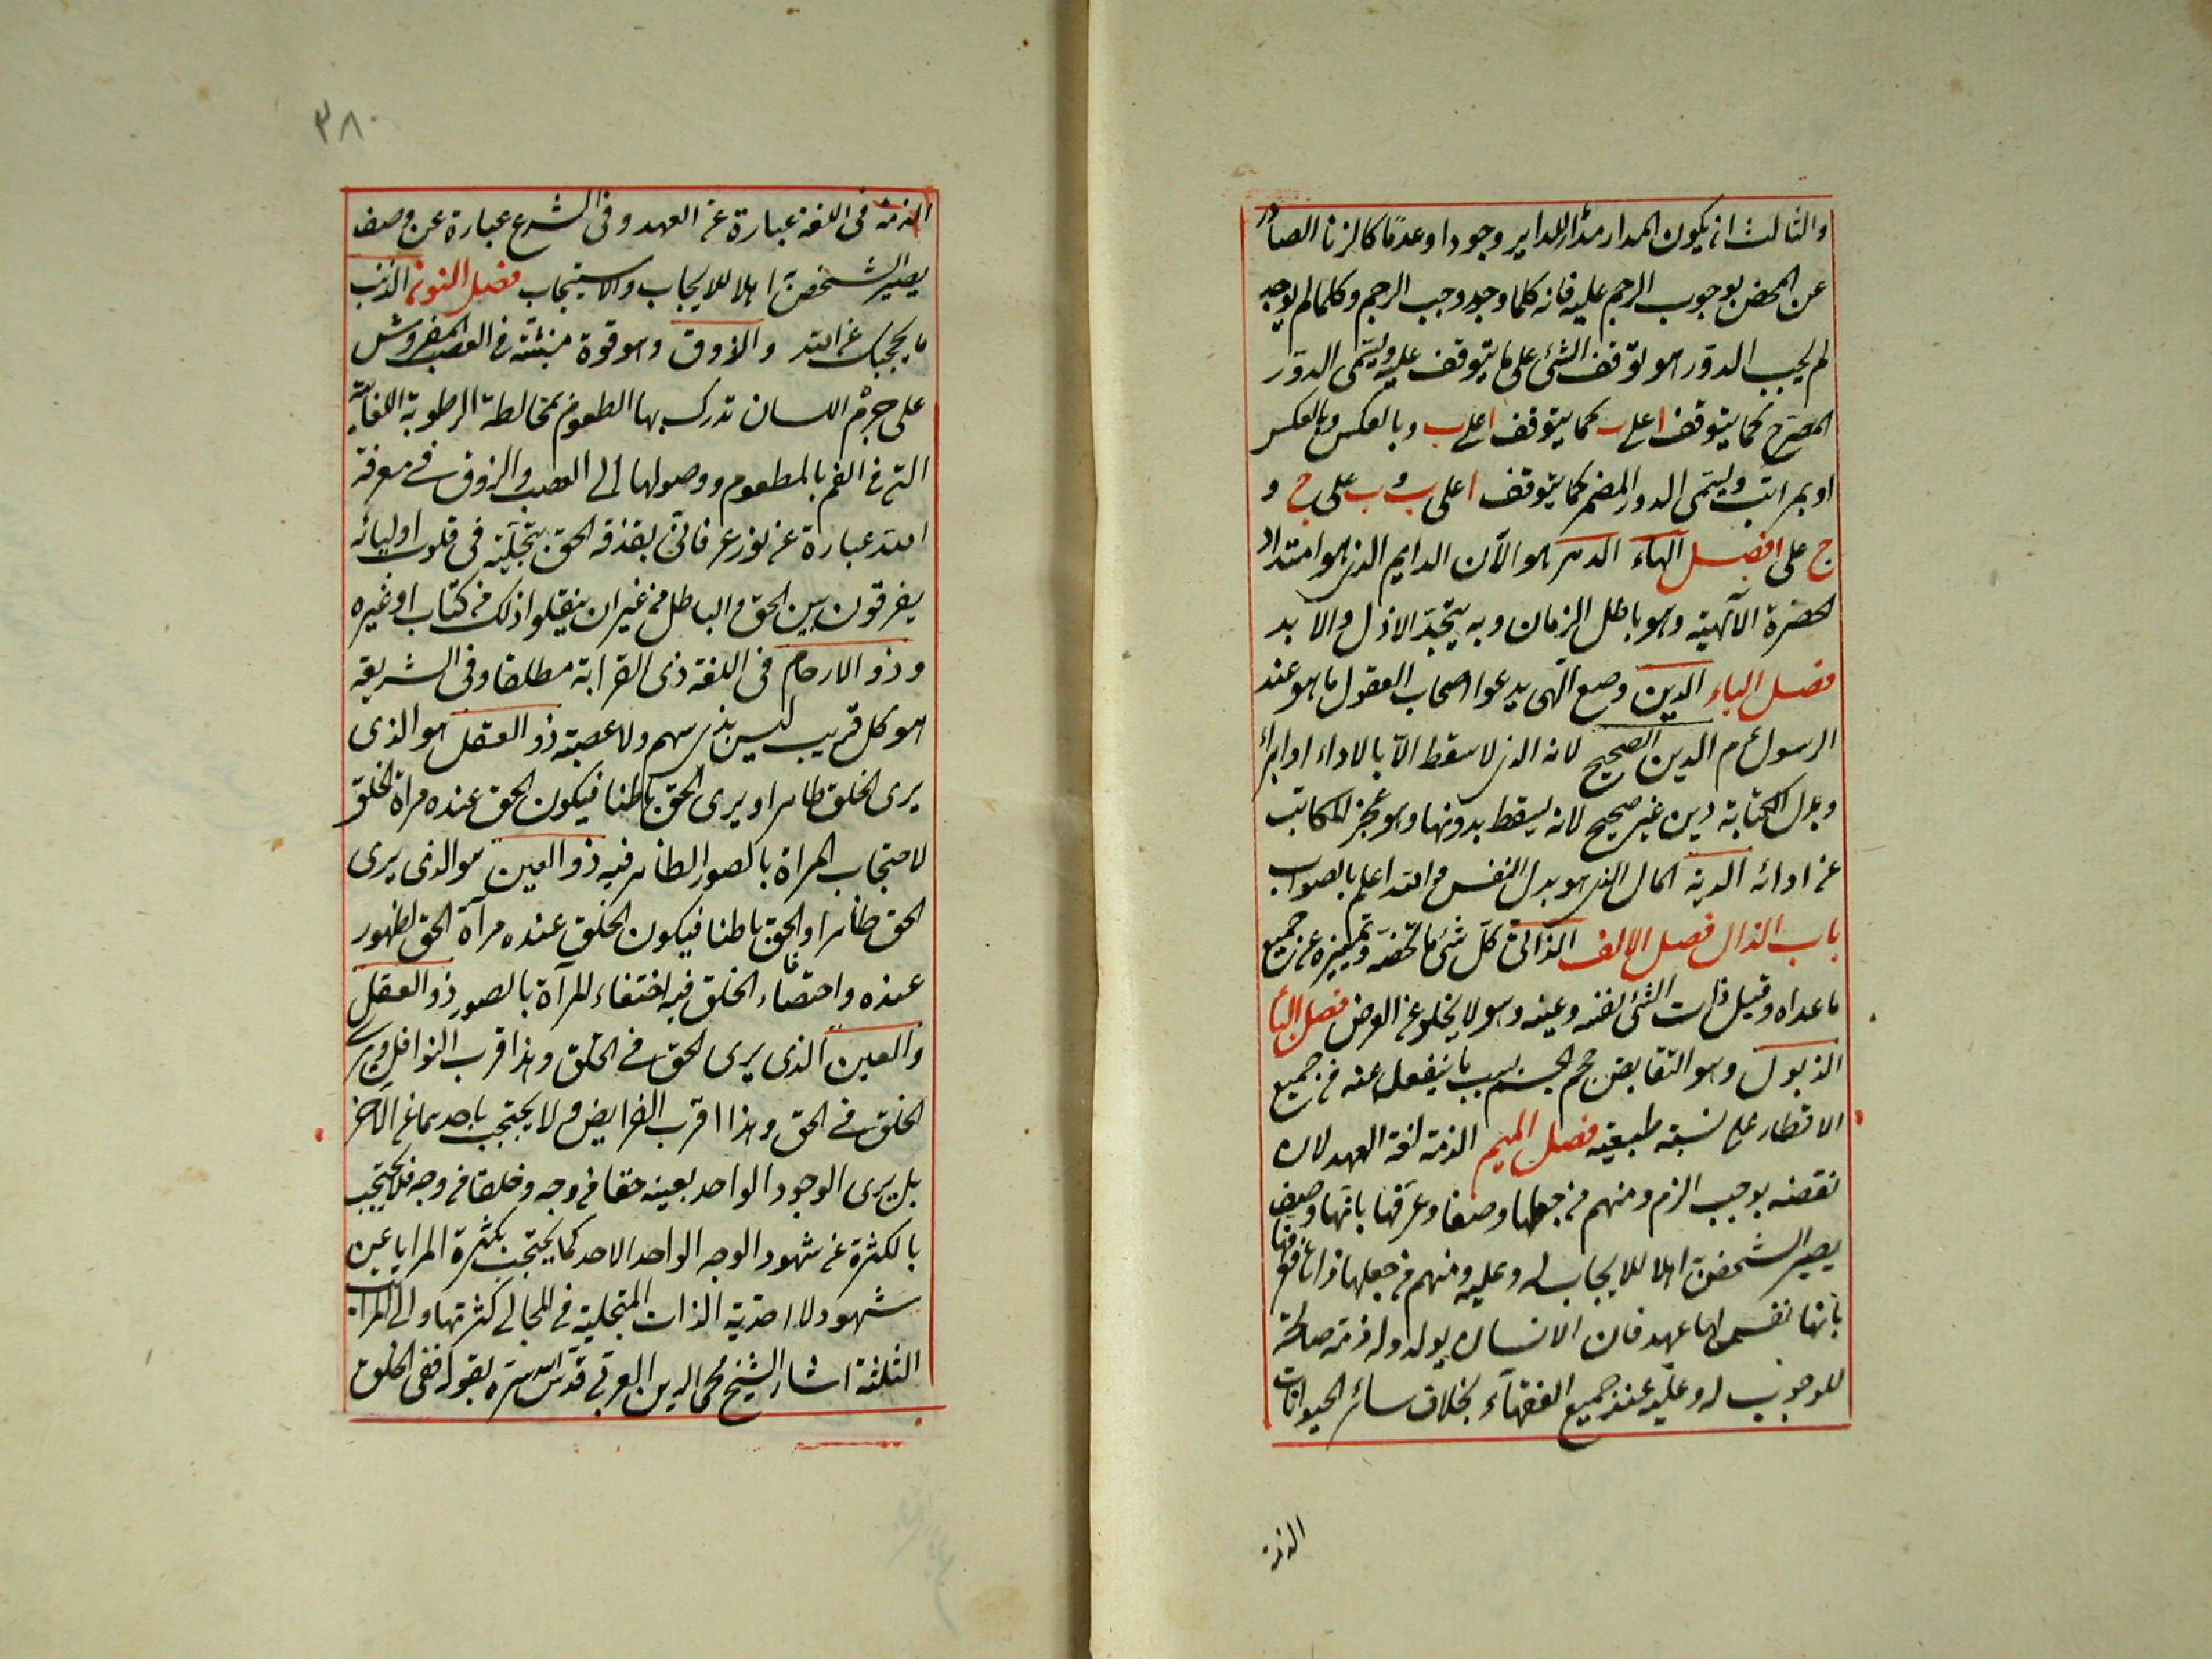 والثالث ان يكون المدار مدارا للداير وجودا وعدما كالزنا الصادر
عن المحصن بوجوب الرجم عليه فانه كلما وجد وجب الرجم وكلما لم يوجد
لم يجب الدور هو توقف الشئ على ما يتوقف عليه ويسمى الدور
المصرح كما يتوقف ا على ب كما يتوقف ا على ب وبالعكس وبالعكس
او بمراتب ويسمى الدور المضمر كما يتوقف ا على ب و ب على ج و
ج على ا فصل الهاء الدهر هو الآن الدايم الذى هو امتداد
الحضرة الآلهية وهو باطل الزمان وبه يتحد الازل والابد
فصل الياء الدين وضع آلهى يدعوا اصحاب العقول ما هو عند
الرسول عم الدين الصحيح لانه الذى لا يسقط الا بالاداء او ابراء
وبدل الكتابة دين غير صحيح لانه يسقط بدونها وهو عجز المكاتب
عن ادائه الدية المال الذى هو بدل النفس والله اعلم بالصواب
باب الذال فصل الالف الذاتى كل شئ ما يخصه ويميزه عن جميع
ما عداه وقيل ذات الشئ نفسه وعينه وهو لا يخلو عن العرض فصل الباء
الذبول وهو انتقاض حجم الجسم بسبب ما ينفصل عنه فى جميع
الاقطار على نسبة طبيعية فصل الميم الذمة لغة العهد لان
نقضه يوجب الذم ومنهم من جعلها وصفا وعرفها بانها وصف
يصير الشخص به اهلا للايجاب له وعليه ومنهم من جعلها ذاتا فعرفها
بانها نفس لها عهد فان الانسان يولد وله ذمة صالحة
للوجوب له وعليه عند جميع الفقهآء بخلاف سائر الحيوانات
الذمة
٣٨٠
الذمة فى اللغة عبارة عن العهد وفى الشرع عبارة عن وصف
يصير الشخص به اهلا للايجاب والاستيجاب فصل النون الذنب
ما يحجبك عن الله والذوق وهو قوة منبثة فى العصب المفروش
على جرم اللسان تدرك بها الطعوم بمخالطة الرطوبة اللعابية
التى فى الفم بالمطعوم ووصولها الى العصب والذوق فى معرفة
الله عبارة عن نور عرفانى يقذفه الحق بتجليه فى قلوب اوليائه
يفرقون بين الحق والباطل من غير ان ينقلوا ذلك من كتاب او غيره
وذو الارحام فى اللغة ذى القرابة مطلقا وفى الشريعة
هو كل قريب ليس بذى سهم ولا عصبة ذو العقل هو الذى
يرى الخلق ظاهرا ويرى الحق باطنا فيكون الحق عنده مراة الخلق
لاحتجاب المراة بالصور الظاهر فيه ذو العين هو الذى يرى
الحق ظاهرا والحق باطنا فيكون الخلق عنده مرآة الحق لظهور
عنده واختفاء الخلق فيه اختفاء المرآة بالصور ذو العقل
والعين الذى يرى الحق فى الخلق وهذا قرب النوافل ويرى
الخلق فى الحق وهذا اقرب الفرايض ولا يحتجب باحدهما عن الآخر
بل يرى الوجود الواحد بعينه حقا من وجه وخلقا من وجه فلا يحتجب
بالكثرة عن شهود الوجه الواحد الاحد كما يحتجب بكثرة المرايا عن
شهود لا احدية الذات المتجلية فى المجالى كثرتها والى المراتب
الثلثة اشار الشيخ محى الدين العربى قدس الله سره بقوله ففى الخلق